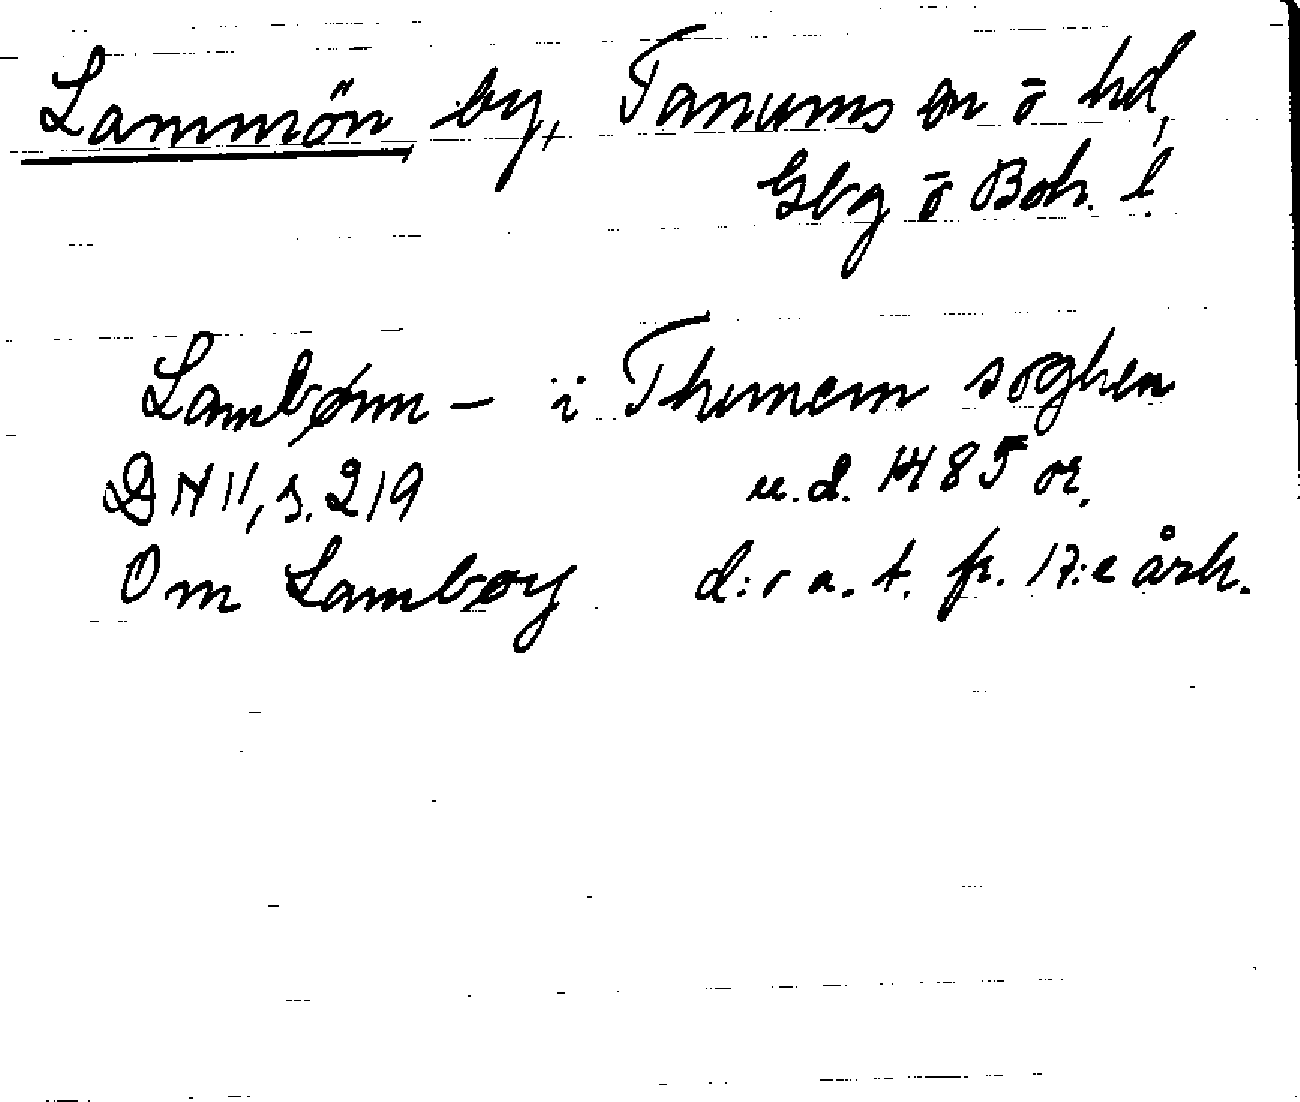 Lammön by, Tanums sn ō hd,
Gbg ō Boh. l.
Lambønn – i Thunem soghen
DN II, s. 219 u.d. 1485 or.
Om Lambøy d:o a. t. fr. 17:e årh.